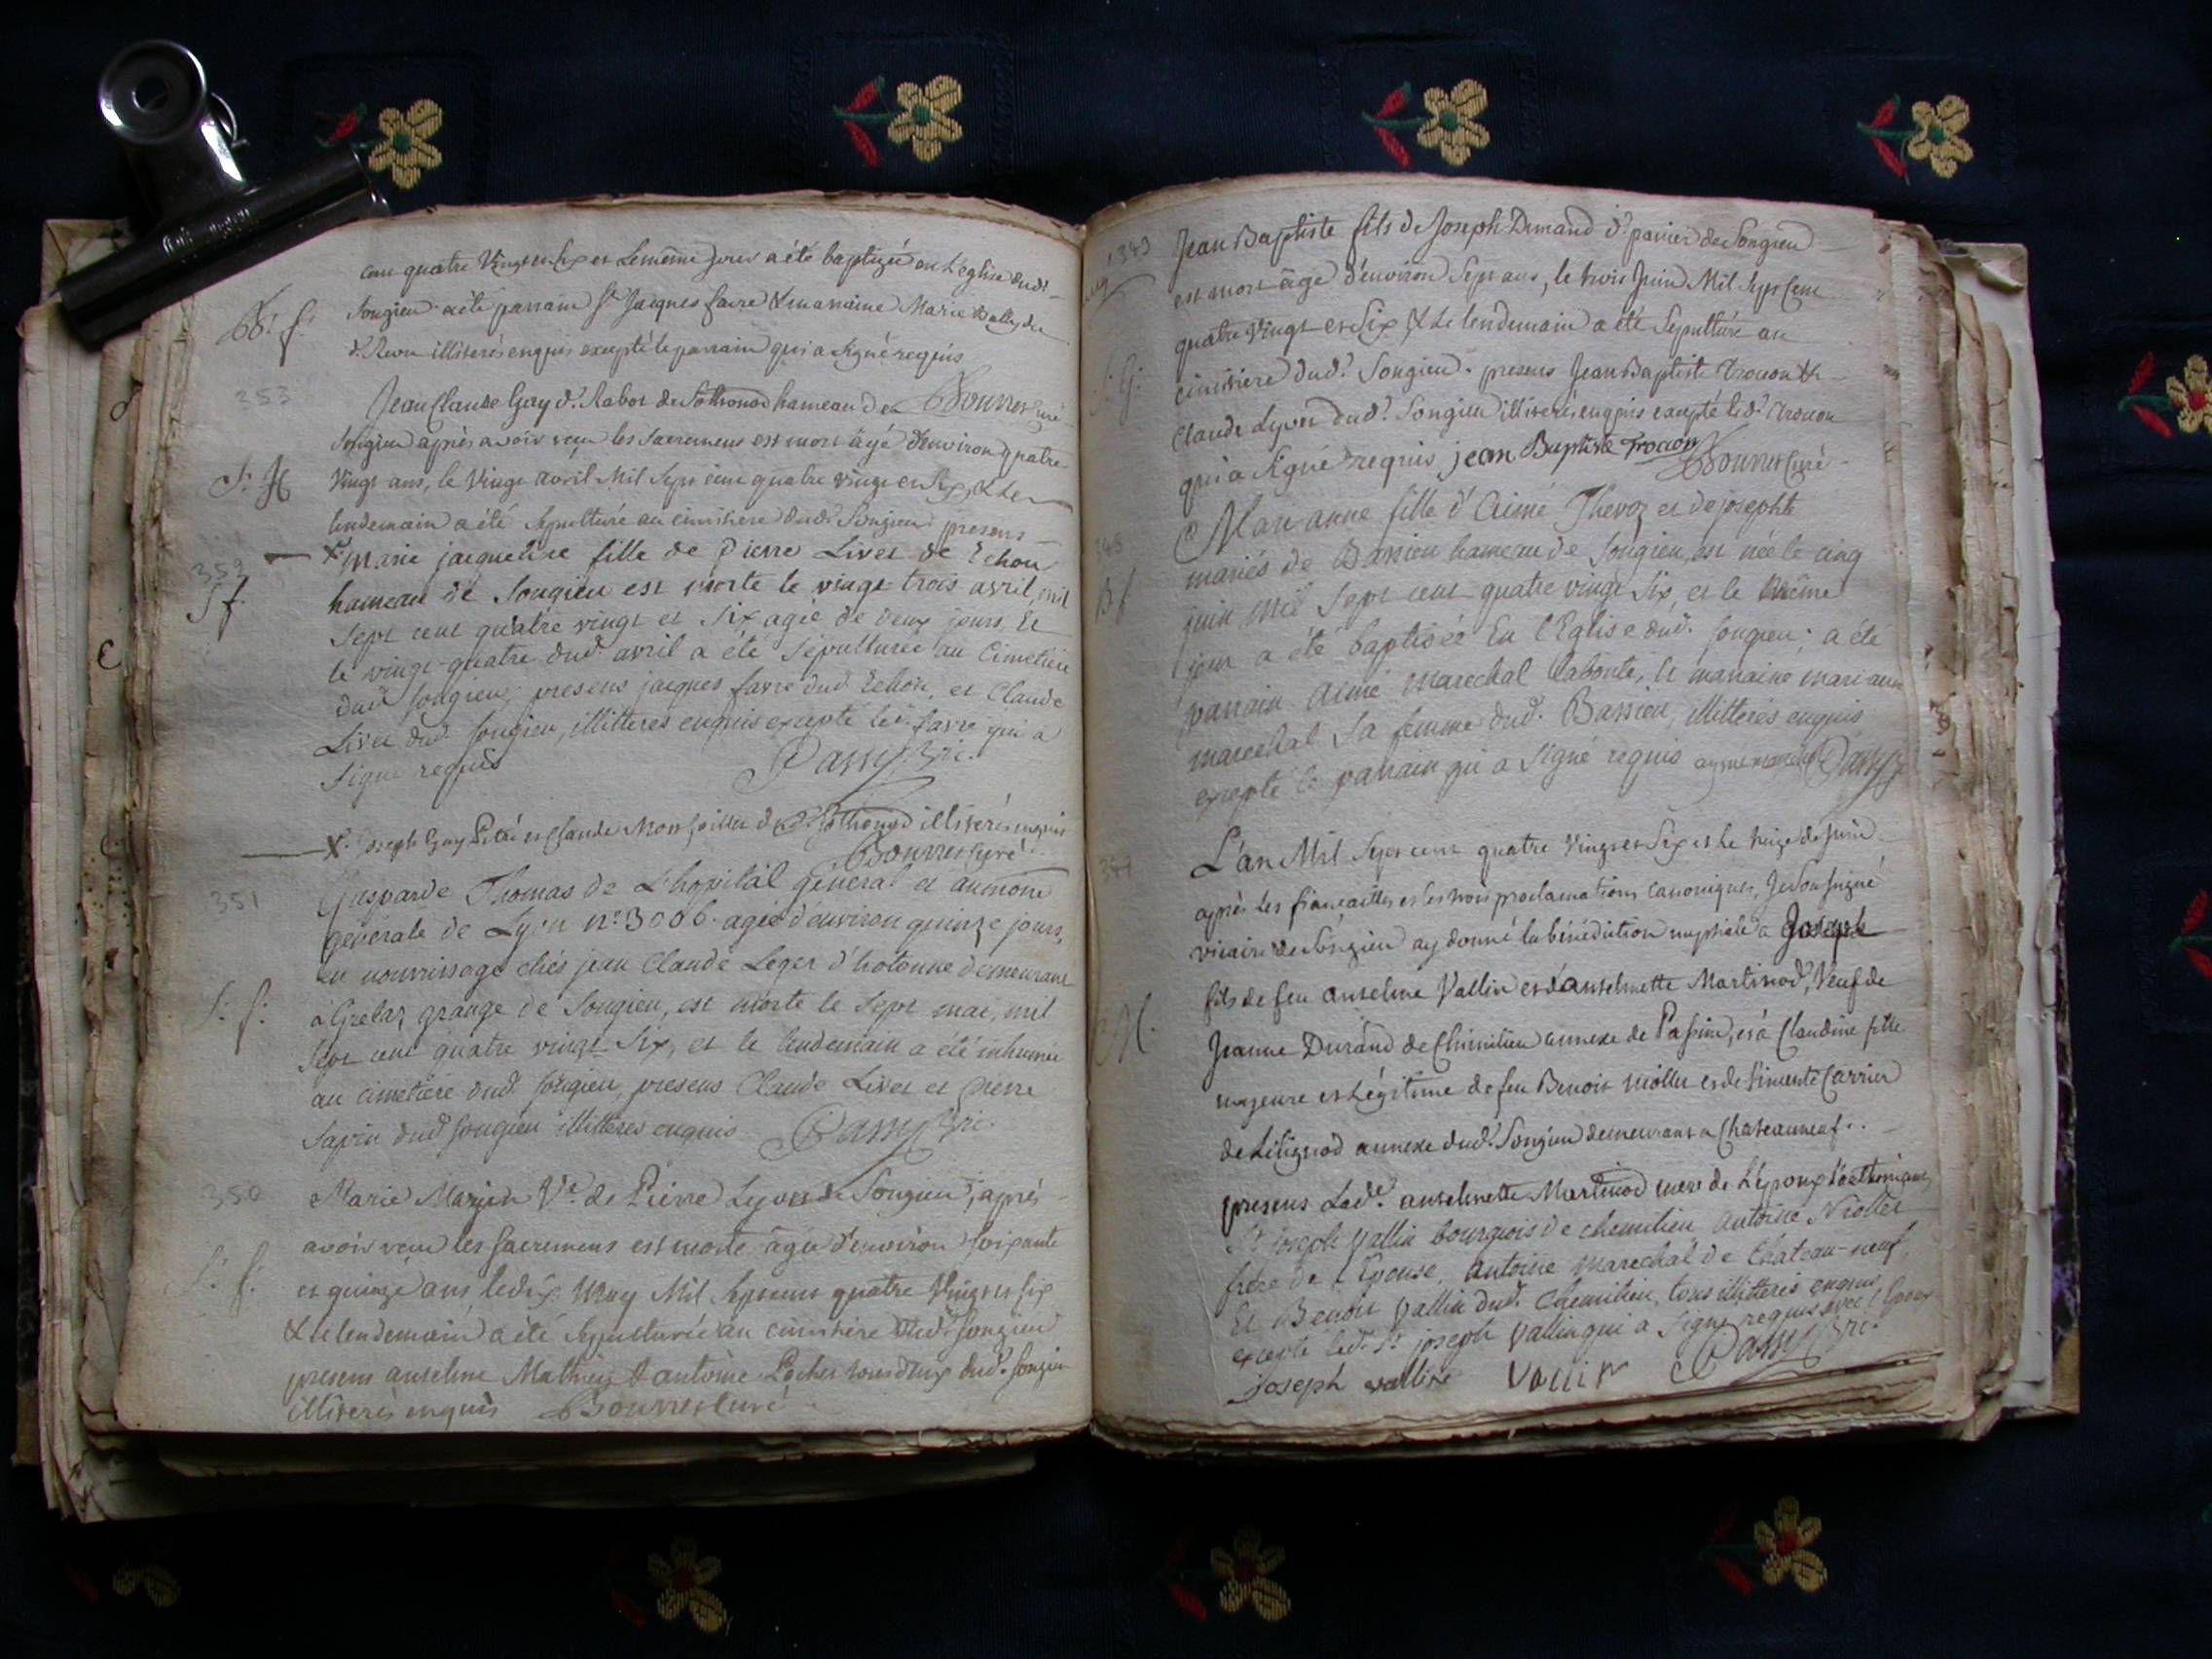 cent quatre Vingt et six et Le même jour a été baptizé en L'eglise dud.
Songieu a été parrain Sr Jacques favre & marraine Marie
illiterés enquis excepté le parrain qui a signé requis
B. f.
353
Jean Claude Gay d. Rabot de Sothonod hameau de Bourret curé
Songieu après avoir reçu les sacremens est mort âgé d'environ quatre
S. H
Vingt ans, le Vingt avril Mil Sept cent quatre Vingt et Six, & le
lendemain a été sepulturé au cimitiere dud. Songieu presens
352
X Marie jacqueline fille de pierre Livet de Echon
S f
hameau de Songieu est morte le vingt trois avril, mil
Sept cent quatre vingt et Six agée de deux jours. Et
le vingt-quatre dud. avril a été Sépulturée au Cimetiere
dud. Songieu; presens jacques favre dud. Echon, et Claude
Livet dud. Songieu, illitterés enquis excepté led. favre qui a
Signé requis Passy vic.
X. Joseph Gay et Claude Montpiller de Sothonod illiterés enquis
Bourret curé
351
Gasparde Thomas de L'hopital général et aumône
générale de Lyon n.° 3006. agée d'environ quinze jours,
en nourrissage chés jean Claude Leger d'hotonne demeurant
S. f.
à Grelaz grange de Songieu, est morte le Sept mai, mil
Sept cent quatre vingt Six, et le lendemain a été inhumée
au cimetiere dud. Songieu, presens Claude Livet et pierre
Savin dud. Songieu illitterés enquis Passy vic.
350
Marie Marjon Ve. de Pierre Lyvet de Songieu, après
avoir reçu les sacremens est morte âgée d'environ soixante
S. f.
et quinze ans le dix May Mil Sept cent quatre Vingt et six
& le lendemain a été sepulturée au cimitière dud. Songieu
presens anselme Mathieu & antoine Pochet tous deux dud. Songieu
illiterés enquis Bourret curé
349
Jean Baptiste fils de Joseph Dunand d. panier de Songieu
est mort âgé d'environ Sept ans, le trois Juin Mil Sept Cent
quatre Vingt et Six & Le lendemain a été Sepulturé au
S. G.
cimitiere dud. Songieu. presens Jean Baptiste Trocon &
Claude Lyvet dud. Songieu illiterés enquis excepté led. Trocon
qui a signé requis jean Baptiste Trocon Bourret curé
Marianne fille d'Aimé Thevoz et de josephte
348
mariés de Bassieu hameau de Songieu, est née le cinq
B f
juin mil Sept cent quatre vingt Six, et le même
jour a été baptisée En l'Eglise dud. Songieu; a été
parrain Aimé marechal Labonte, et marraine marianne
marechal Sa femme dud. Bassieu, illitterés enquis
excepté le parrain qui a signé requis aymé marechal Passy
347
L'an Mil Sept cent quatre Vingt et Six et le treize de Juin
après les fiancailles et les trois proclamations canoniques, Je Soussigné
vicaire de Songieu ay donné la bénédiction nuptiale à Joseph
fils de feu anselme Vallin et d'anselmette Martinod, Veuf de
M.
Jeanne Durand de Chimilieu annexe de Passin, et à Claudine fille
majeure et Légitime de feu Benoit Niollet et de Pimente Carrier
de Lilignod annexe dud. Songieu demeurant a Chateauneuf..
presens Lade. anselmette Martinod mere de L'époux
Sr joseph Vallin bourgeois de chemilieu, Antoine Niollet
frere de l'Epouse, Antoine marechal de Chateau-neuf,
Et Benoit Vallin dud. Chemilieu, tous illitterés enquis,
excepté led. Sr joseph Vallin qui a signé requis avec l'époux
joseph vallin Vallin Passy vic.